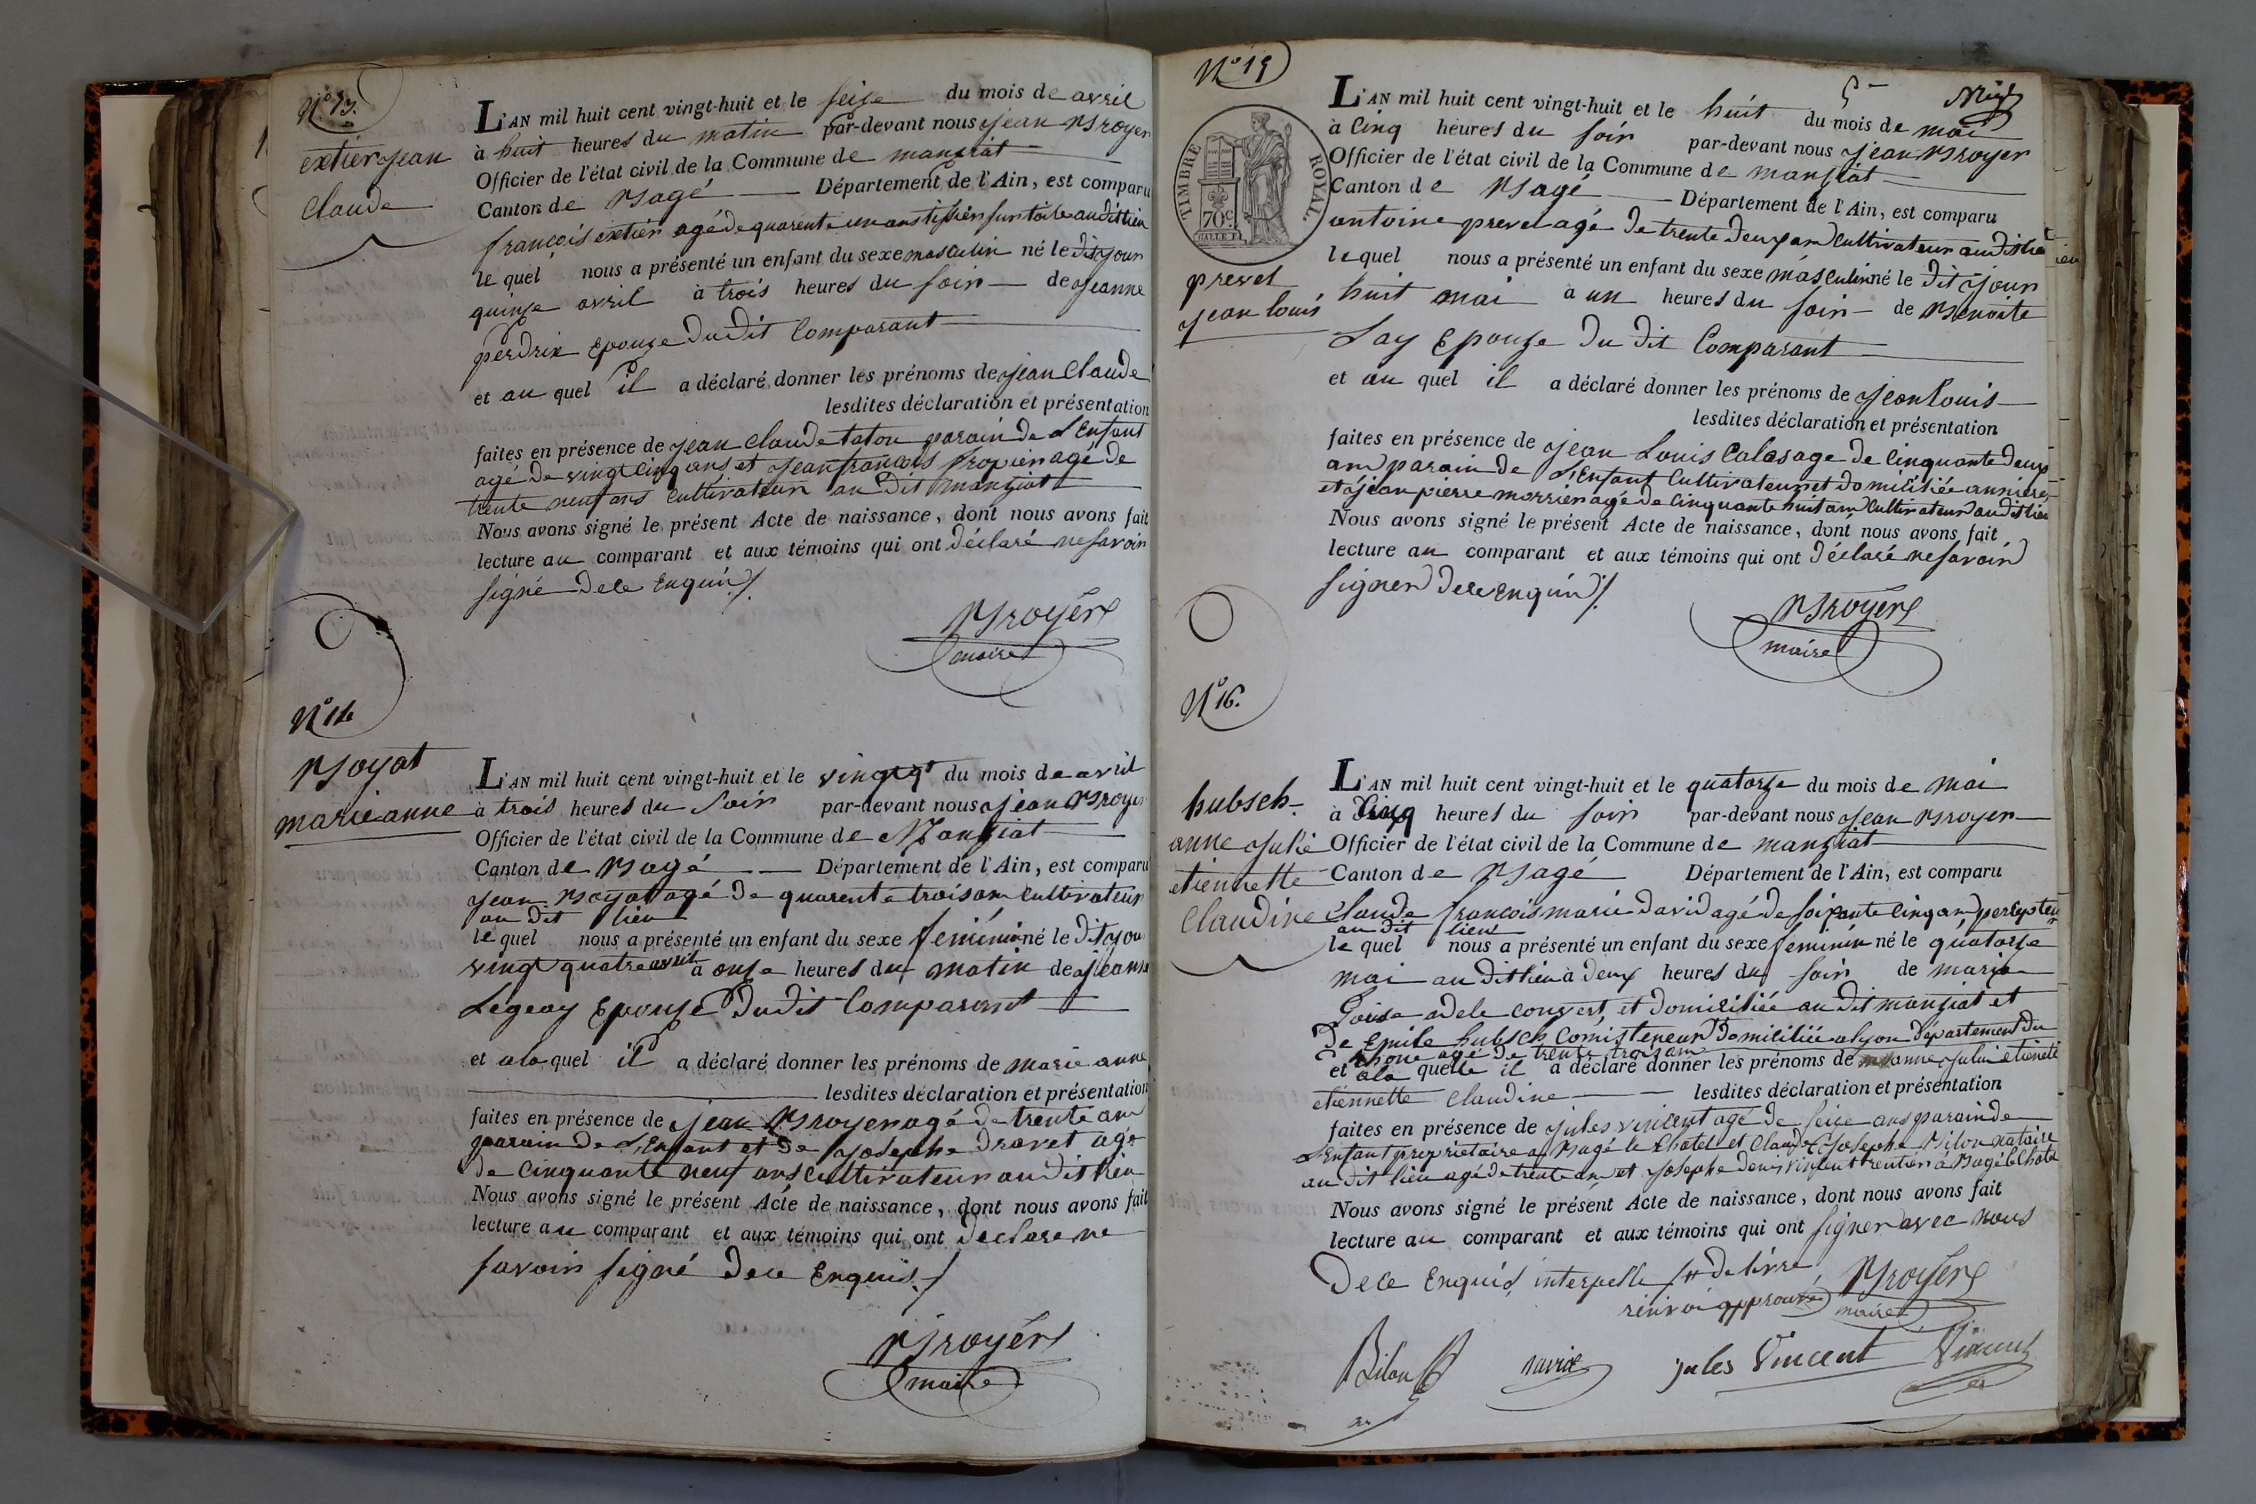 N.° 13.
extier jean
claude
L'AN mil huit cent vingt-huit et le seize du mois de avril
à huit heures du matin par-devant nous jean Broyer
Officier de l'état civil de la Commune de manziat
Canton de Bagé Département de l'Ain, est comparu
françois extier agé de quarente un ans tissier sur toile audit lieu
le quel nous a présenté un enfant du sexe masculin né le dit jour
quinze avril à trois heures du soir de jeanne
perdrix Epouze Du Dit Comparant
et au quel il a déclaré donner les prénoms de jean claude
lesdites déclaration et présentation
faites en présence de jean claude taton parain de L'Enfant
agé de vingt cinq ans et jean francois agé de
trente neuf ans Cultivateur au Dit manziat
Nous avons signé le présent Acte de naissance, dont nous avons fait
lecture au comparant et aux témoins qui ont Déclaré ne savoir
signé De ce Enquis ./.
Broyer
maire
N° 14
Boyat
marie anne
L'AN mil huit cent vingt-huit et le vingt 4e du mois de avril
à trois heures du soir par-devant nous jean Broyer
Officier de l'état civil de la Commune de Manziat
Canton de Bagé Département de l'Ain, est comparu
jean Boyat agé de quarente trois ans Cultivateur
au dit lieu
le quel nous a présenté un enfant du sexe feminin né le Dit jour
vingt quatre avril à onze heures du matin de jeanne
Legeay Epouze Du dit Comparant
et ala quel il a déclaré donner les prénoms de marie anne
lesdites déclaration et présentation
faites en présence de jean Broyer agé de trente ans
parain De L'Enfant et de josephe Dravet agé
de Cinquante neuf ans Cultivateur au dit lieu
Nous avons signé le présent Acte de naissance, dont nous avons fait
lecture au comparant et aux témoins qui ont Declare ne
savoir signé De ce Enquis ./
Broyer
maire
N° 15
5e
TIMBRE ROYAL.
70c.
prevet
jean louis
L'AN mil huit cent vingt-huit et le huit du mois de mai
à Cinq heures du soir par-devant nous jean Broyer
Officier de l'état civil de la Commune de manziat
Canton de Bagé Département de l'Ain, est comparu
antoine prevet agé De trente Deux ans Cultivateur au Dit lieu
le quel nous a présenté un enfant du sexe masculin né le Dit jour
huit mai à un heures du soir de Benoite
Lay Epouze Du dit Comparant
et au quel il a déclaré donner les prénoms de jean Louis
lesdites déclaration et présentation
faites en présence de jean Louis Calas age De Cinquante Deux
ans parain De L'Enfant Cultivateur et Domiciliée
et jean pierre morrier agé De Cinquante huit ans Cultivateur au dit lieu
Nous avons signé le présent Acte de naissance, dont nous avons fait
lecture au comparant et aux témoins qui ont Déclaré ne savoir
signer De ce Enquis ./.
Broyer
maire
N° 16.
hubsch
anne julie
etiennette
Claudine
L'AN mil huit cent vingt-huit et le quatorze du mois de mai
à Cinq heures du soir par-devant nous jean Broyer
Officier de l'état civil de la Commune de manziat
Canton de Bagé Département de l'Ain, est comparu
Claude francois marie David agé de soixante Cinq ans percepteur
au dit lieu
le quel nous a présenté un enfant du sexe feminin né le quatorze
mai au dit lieu à Deux heures du soir de marie
Loise adele convert et Domiciliée au dit manziat et
De Emile hubsch Domiciliée a lyon Departement Du
Rhone agé De trente trois ans
et ala quelle il a déclaré donner les prénoms de anne julie
etiennette Claudine lesdites déclaration et présentation
faites en présence de jules vincent agé de seize ans parain de
L'Enfant propriétaire a Bagé le Chatel et Claude josephe Bilon notaire
au dit lieu agé de trente ans et josephe vincent rentier à Bagé le Chatel
Nous avons signé le présent Acte de naissance, dont nous avons fait
lecture au comparant et aux témoins qui ont signer avec nous
De ce Enquis interpelle
renvoi approuvé
Broyer
maire
Bilon
David
jules Vincent
Vincent